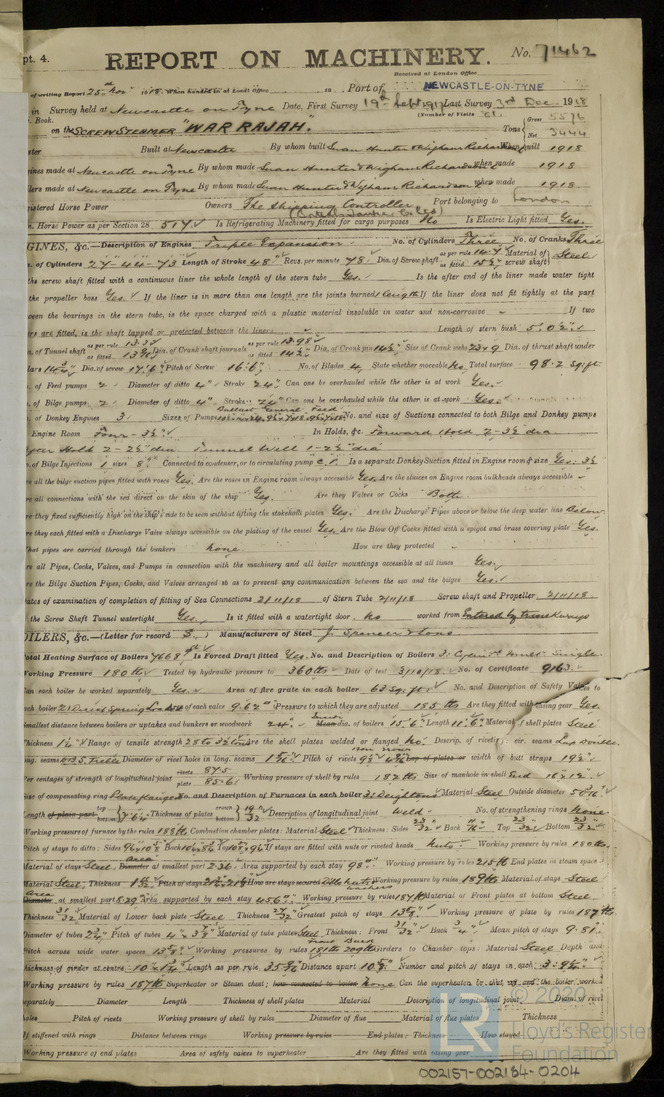 pt. 4.
REPORT ON MACHINERY. No. 71462
Received at London Office
of writing Report 25th Nov 1918 When handed in at Local Office 19 Port of NEWCASTLE-ON-TYNE
in Survey held at Newcastle on Tyne Date, First Survey 19th Sept 1917 Last Survey 3rd Dec 1918
Book. (Number of Visits 61.
on the SCREW STEAMER "WAR RAJAH." Tons Gross 5576 Net 3444
ster Built at Newcastle By whom built Swan Hunter & Wigham Richardson When built 1918
ines made at Newcastle on Tyne By whom made Swan Hunter & Wigham Richardson when made 1918
lers made at Newcastle on Tyne By whom made Swan Hunter & Wigham Richardson when made 1918
istered Horse Power Owners The Shipping Controller Port belonging to London
. Horse Power as per Section 28 517 Is Refrigerating Machinery fitted for cargo purposes No Is Electric Light fitted Yes.
GINES, &c.—Description of Engines Triple Expansion No. of Cylinders Three No. of Cranks Three
. of Cylinders 27-44-73 Length of Stroke 48" Revs. per minute 78 Dia. of Screw shaft as per rule 14.7 as fitted 15 1/2 Material of screw shaft Steel
the screw shaft fitted with a continuous liner the whole length of the stern tube Yes. Is the after end of the liner made water tight
the propeller boss Yes. If the liner is in more than one length are the joints burned 1 length If the liner does not fit tightly at the part
ween the bearings in the stern tube, is the space charged with a plastic material insoluble in water and non-corrosive - If two
ers are fitted, is the shaft lapped or protected between the liners - Length of stern bush 5'.0 1/2"
. of Tunnel shaft as per rule 13.3 as fitted Dia. of Crank shaft journals as per rule 13.98 as fitted 14 1/2 Dia. of Crank pin 14 1/2" Size of Crank webs 23x9 Dia. of thrust shaft under
lars 14 Dia. of screw 17'.6" Pitch of Screw 16'.6" No. of Blades 4 State whether moveable No Total surface 98.2 sq. ft.
. of Feed pumps 2 Diameter of ditto 4" Stroke 24" Can one be overhauled while the other is at work Yes.
. of Bilge pumps 2 Diameter of ditto 4" Stroke 24" Can one be overhauled while the other is at work Yes.
. of Donkey Engines 3 Sizes of Pumps Ballast General Feed No. and size of Suctions connected to both Bilge and Donkey pumps
Engine Room Four - 3 1/2" In Holds, &c. Forward Hold 2 - 3 1/2" dia
Hold 2 - 2 1/2" dia Tunnel Well 1 - 2 1/2" dia
. of Bilge Injections 1 sizes 8" Connected to condenser, or to circulating pump C.P. Is a separate Donkey Suction fitted in Engine room & size Yes. 3 1/2
e all the bilge suction pipes fitted with roses Yes. Are the roses in Engine room always accessible Yes. Are the sluices on Engine room bulkheads always accessible -
re all connections with the sea direct on the skin of the ship Yes. Are they Valves or Cocks Both.
re they fixed sufficiently high on the ship's side to be seen without lifting the stokehold plates Yes. Are the Discharge Pipes above or below the deep water line Below
re they each fitted with a Discharge Valve always accessible on the plating of the vessel Yes. Are the Blow Off Cocks fitted with a spigot and brass covering plate Yes.
hat pipes are carried through the bunkers none How are they protected -
re all Pipes, Cocks, Valves, and Pumps in connection with the machinery and all boiler mountings accessible at all times Yes.
re the Bilge Suction Pipes, Cocks, and Valves arranged so as to prevent any communication between the sea and the bilges Yes.
ates of examination of completion of fitting of Sea Connections 2/11/18 of Stern Tube 2/11/18 Screw shaft and Propeller 2/11/18
the Screw Shaft Tunnel watertight Yes. Is it fitted with a watertight door. No worked from Entered by trunkways
OILERS, &c.—(Letter for record S.) Manufacturers of Steel J. Spencer & Sons
otal Heating Surface of Boilers 7668 Is Forced Draft fitted Yes. No. and Description of Boilers 3. Single
Working Pressure 180 lbs Tested by hydraulic pressure to 360 lbs Date of test 3/10/18 No. of Certificate 9163
an each boiler be worked separately Yes. Area of fire grate in each boiler 63 sq. ft. No. and Description of Safety Valves to
ach boiler 2. Direct Spring Area of each valve 9.62" Pressure to which they are adjusted 185 lbs Are they fitted with easing gear Yes.
mallest distance between boilers or uptakes and bunkers or woodwork 24" dia. of boilers 15'.6" Length 11'.6" Material of shell plates Steel
hickness Range of tensile strength 28 to 32 tons Are the shell plates welded or flanged No. Descrip. of riveting: cir. seams Lap Double
ong. seams Treble Diameter of rivet holes in long. seams Pitch of rivets Lap of plates or width of butt straps 19 1/2"
Per centages of strength of longitudinal joint rivets 87.5 plate 85.61 Working pressure of shell by rules 182 lbs Size of manhole in shell End 16x12
ize of compensating ring Flanged No. and Description of Furnaces in each boiler 3. Deightons Material Steel Outside diameter
ength of plain part top bottom Thickness of plates crown bottom Description of longitudinal joint Weld No. of strengthening rings None
Working pressure of furnace by the rules 188 lbs Combustion chamber plates: Material Steel Thickness: Sides 23/32 Back 11/16 Top 23/32 Bottom 23/32
itch of stays to ditto: Sides Back Top If stays are fitted with nuts or riveted heads Nuts Working pressure by rules 180 lbs
Material of stays Steel Diameter at smallest part 2.36 Area supported by each stay 98" Working pressure by rules 215 lb End plates in steam space
Material Steel, Thickness Pitch of stays How are stays secured Working pressure by rules 189 lbs Material of stays Steel
Area at smallest part 8.29 Area supported by each stay 456.3 Working pressure by rules 187 lb Material of Front plates at bottom Steel
hickness 31/32 Material of Lower back plate Steel Thickness 27/32 Greatest pitch of stays 13 5/8 Working pressure of plate by rules 187 lbs
iameter of tubes 2 3/4" Pitch of tubes Material of tube plates Steel Thickness: Front 31/32 Back 3/4 Mean pitch of stays 9.81
itch across wide water spaces 13 5/8" Working pressures by rules 181 lb 200 lbs Girders to Chamber tops: Material Steel Depth and
hickness of girder at centre Length as per rule Distance apart 10 5/8 Number and pitch of stays in each 3: 9 1/2"
Working pressure by rules 187 lbs Superheater or Steam chest; how connected to boiler None Can the superheater be shut off and the boiler worked
eparately Diameter Length Thickness of shell plates Material Description of longitudinal joint Diam. of rivet
holes Pitch of rivets Working pressure of shell by rules Diameter of flue Material of flue plates Thickness
If stiffened with rings Distance between rings Working pressure by rules End plates: Thickness How stayed
Working pressure of end plates Area of safety valves to superheater Are they fitted with easing gear
© 2020
Lloyd's Register
Foundation
002157-002164-0204